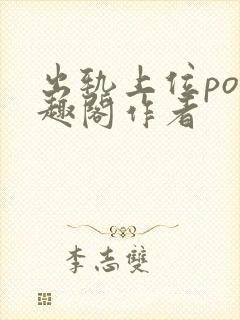 出轨上位po
趣阁作者
李志双